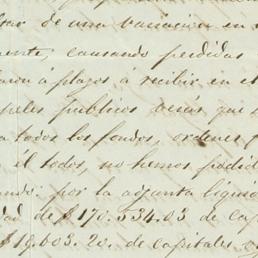 de una variacion en
causando perdidas
a plazos á recibir en el
papeles publicos
a todos los fondos, ordenes
el todos, no hemos podido
por la adjunta liquid
dad de $170.534.03 de Cap
$19.603.20. de capitales